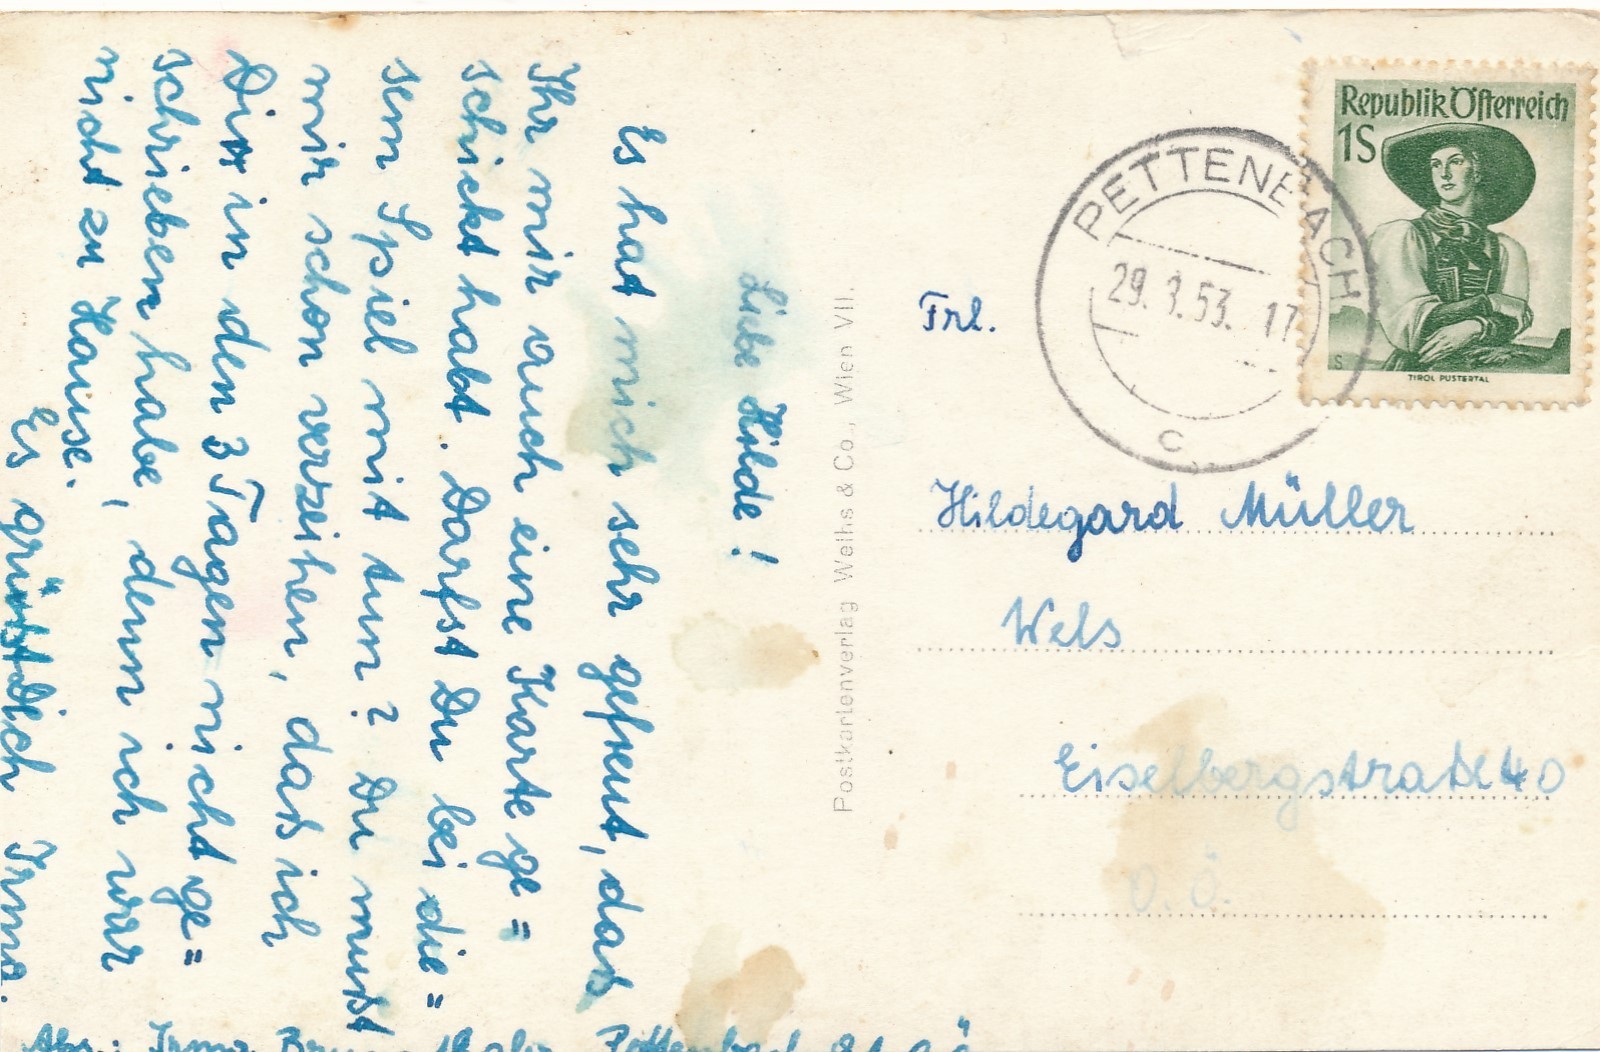 Liebe Hilde!
Es hat mich sehr gefreut, daß
Ihr mir auch eine Karte ge=
schickt habt. Darfst Du bei die=
sem Spiel mit tun? Du mußt
mir schon verzeihen, daß ich
Dir in den 3 Tagen nicht ge=
schrieben habe, denn ich war
nicht zu Hause.
Es grüßt Dich Irma.
Abs.: Irma
Postkartenverlag Weihs & Co., Wien VII.
Republik Österreich
1S
TIROL PUSTERTAL
PETTENBACH
29. 53. 17
c
Frl.
Hildegard Müller
Wels
Eiselbergstraße 40
O.Ö.